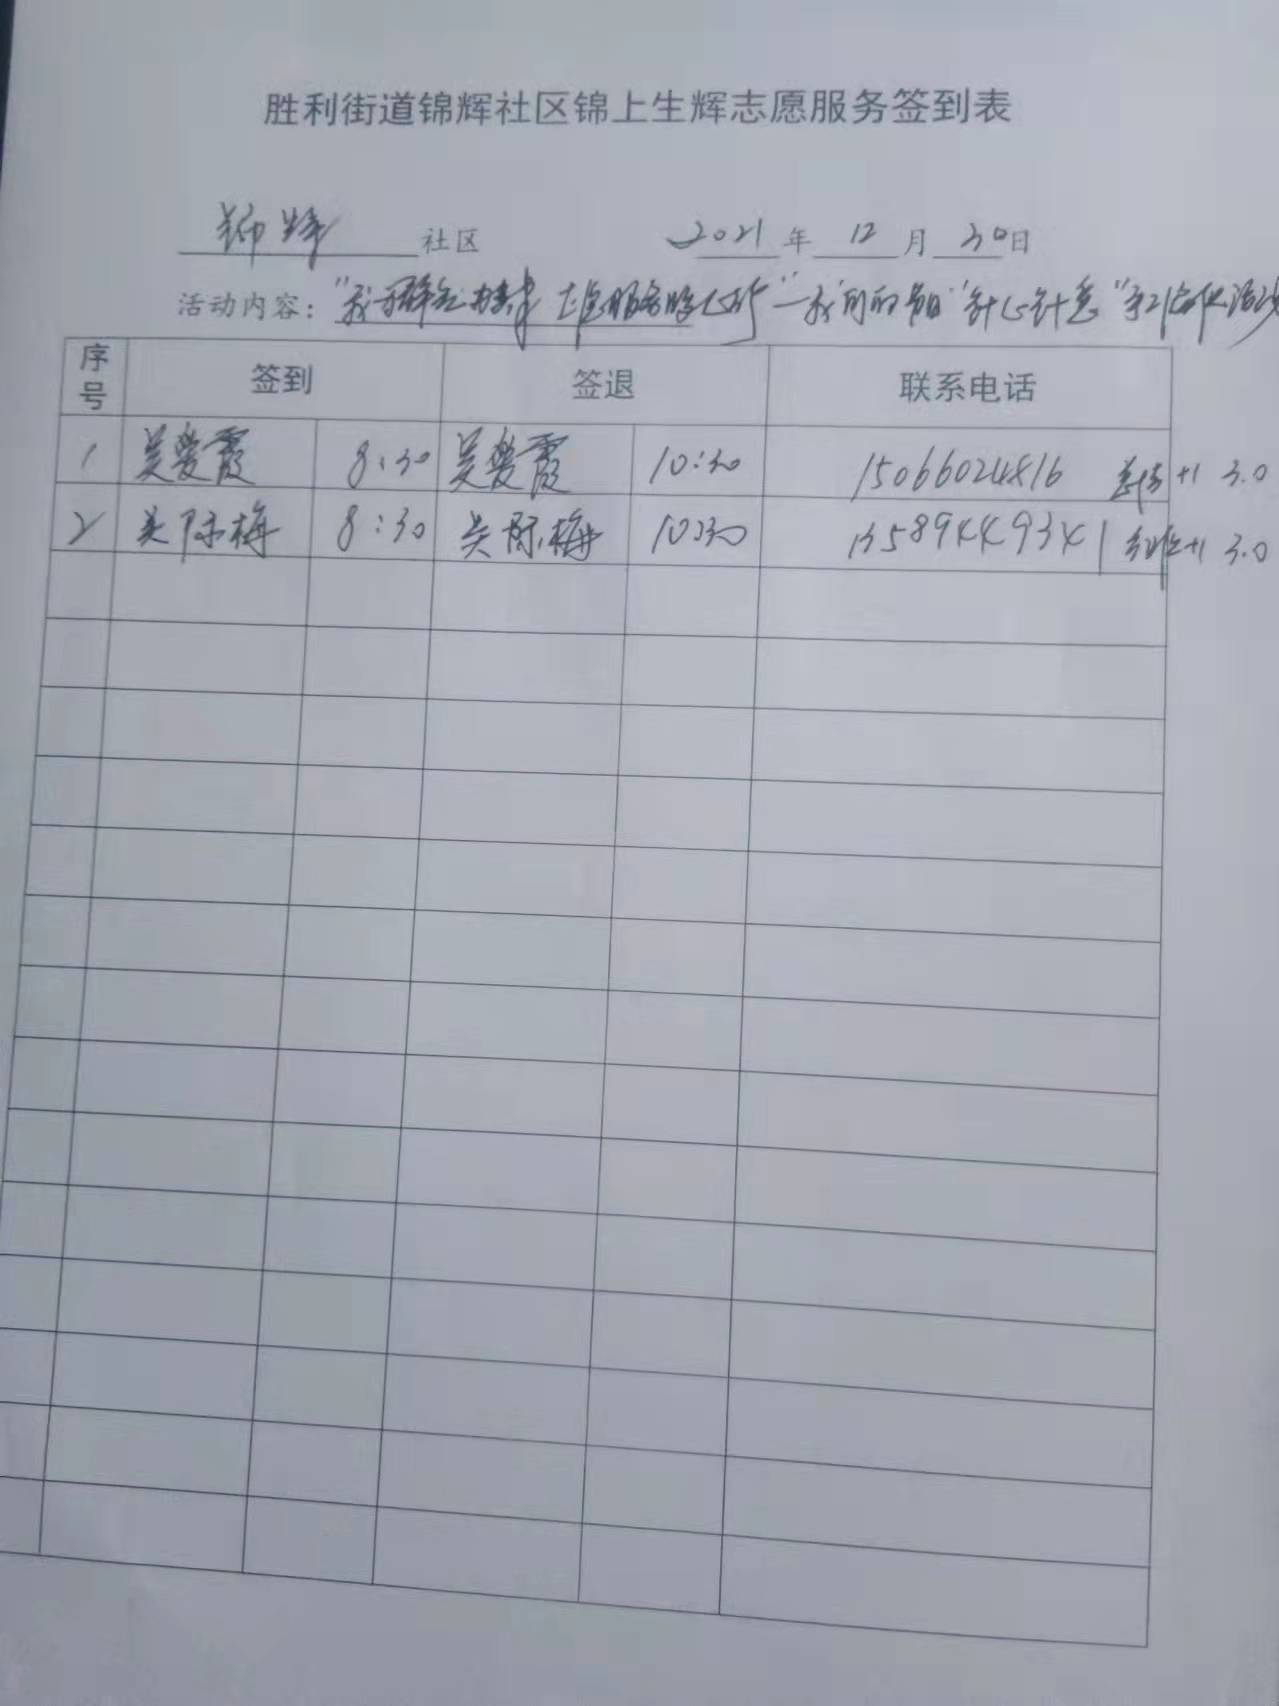 胜利街道锦辉社区锦上生辉志愿服务签到表
锦辉 社区 2021 年 12 月 30 日
活动内容: "我 服务 "一我们的节日"针心针意"
序号 签到 签退 联系电话
1 吴爱霞 8:30 吴爱霞 10:30 15066024816 +1 3.0
2 关际梅 8:30 关际梅 10:30 +1 3.0